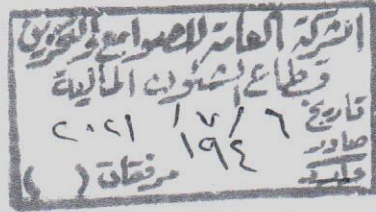 الشركة العامة للصوامع والتخزين
قطاع الشئون المالية
تاريخ ٦ / ٧ / ٢٠٢١
صادر ١٩٤
وارد مرفقات ( )